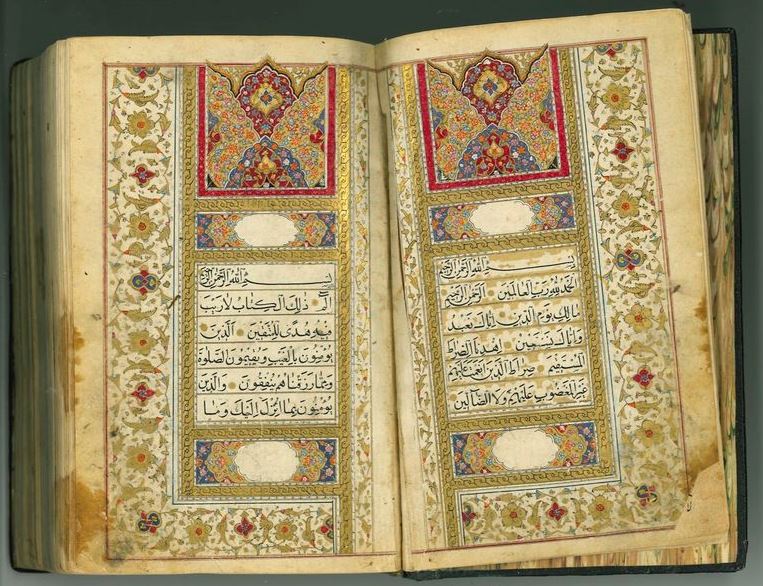 بسم الله الرحمن الرحيم
الحمد لله رب العالمين الرحمن الرحيم
مالك يوم الدين اياك نعبد
واياك نستعين اهدنا الصراط
المستقيم صراط الذين انعمت عليهم
غير المغضوب عليهم ولا الضالين
بسم الله الرحمن الرحيم
الم ذلك الكتاب لا ريب
فيه هدى للمتقين الذين
يؤمنون بالغيب ويقيمون الصلوة
ومما رزقناهم ينفقون والذين
يؤمنون بما انزل اليك وما